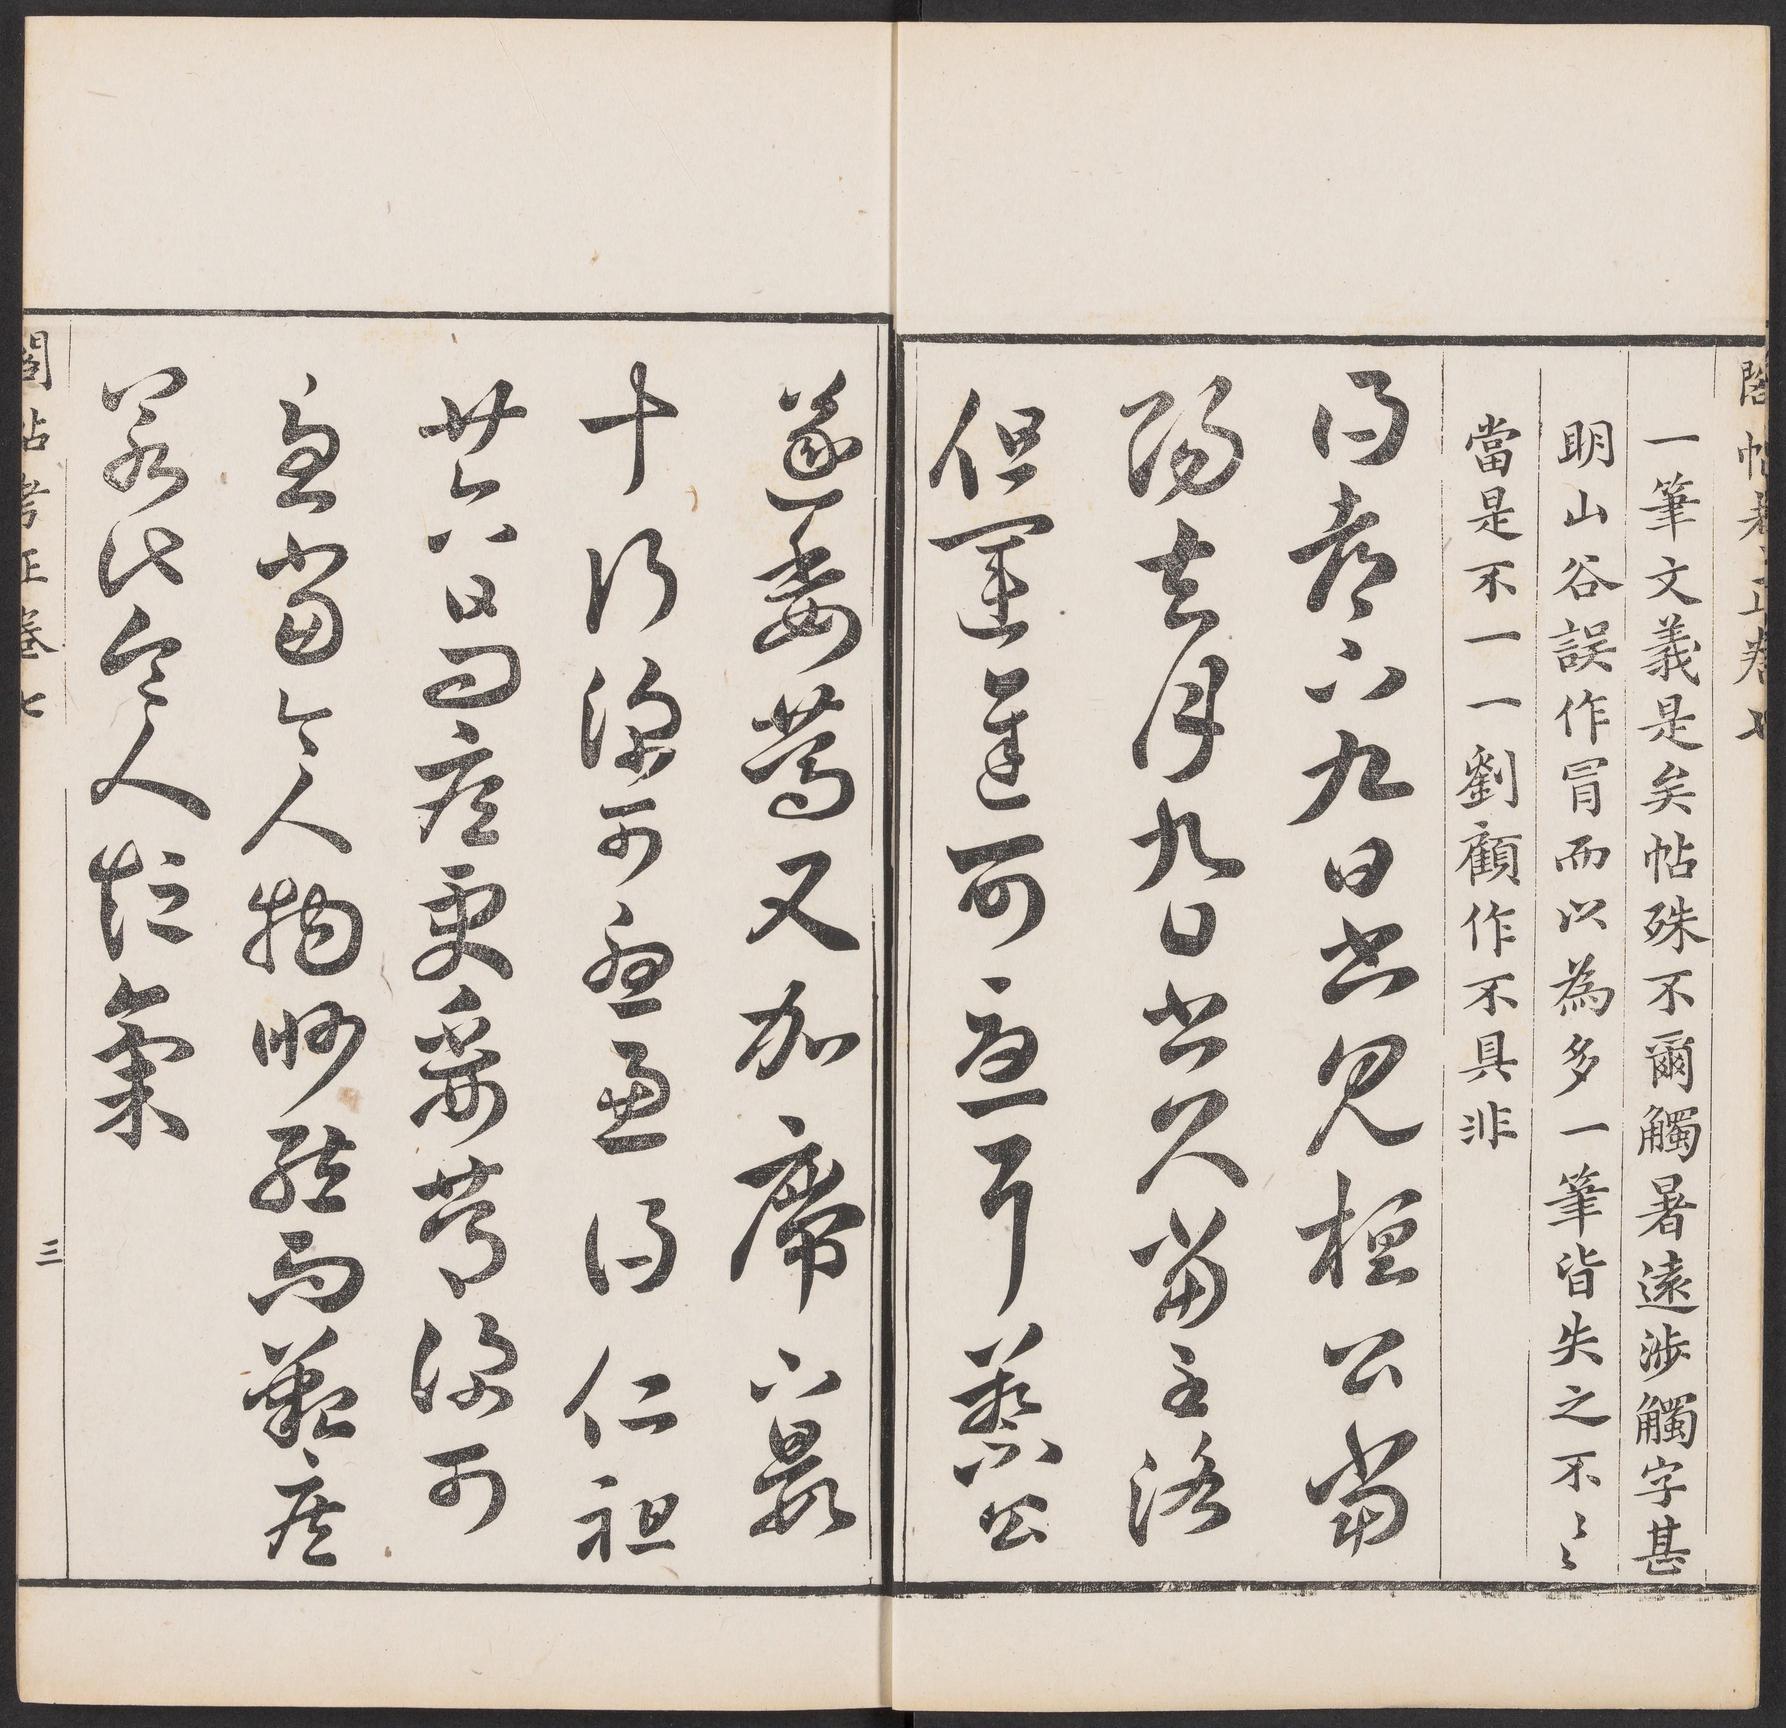 閣帖考正卷七
一筆文義是矣帖殊不爾觸暑遠涉觸字甚
明山谷誤作冒而以為多一筆皆失之不〻〻
當是不一一劉顧作不具非
得都下九日書見桓公當
陽去月九日書久當至洛
但運遲可憂耳蔡公
遂委篤又加廗下日數
十行深可憂慮得仁祖
廿六日問疾更委篤深可
憂當今人物眇然而艱疾
若此令人短氣
閣帖考正卷七
三